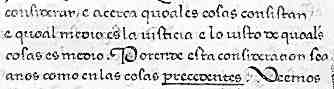 considerar, e acerca quoales cosas consistan
e quoal medio es la iusticia e lo iusto de quoals
cosas es medio. Porende esta consideracion sea
anos como en las cosas precedentes. Veemos